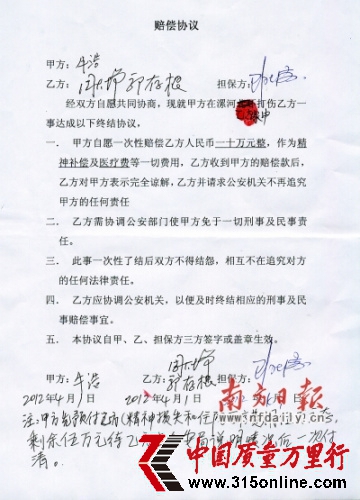 赔偿协议
甲方：牛浩
乙方： 郭存根 担保方：
经双方自愿共同协商，现就甲方在漯河 打伤乙方一
事达成以下终结协议。
一． 甲方自愿一次性赔偿乙方人民币一十万元整，作为
精神补偿及医疗费等一切费用，乙方收到甲方的赔偿款后，
乙方对甲方表示完全谅解，乙方并请求公安机关不再追究
甲方的任何责任
二． 乙方需协调公安部门使甲方免于一切刑事及民事责
任。
三． 此事一次性了结后双方不得结怨，相互不在追究对方
的任何法律责任。
四． 乙方应协调公安机关，以便及时终结相应的刑事及民
事赔偿事宜。
五． 本协议自甲、乙、担保方三方签字或盖章生效。
甲方：牛浩 乙方：郭存根 担保方：
2012年4月1日 2012年4月1日
注：甲方先预付乙方（精神损失和住
剩余伍万元待乙方 说明情况后一次付
清。
南方日报
中国质量万里行
www.315online.com